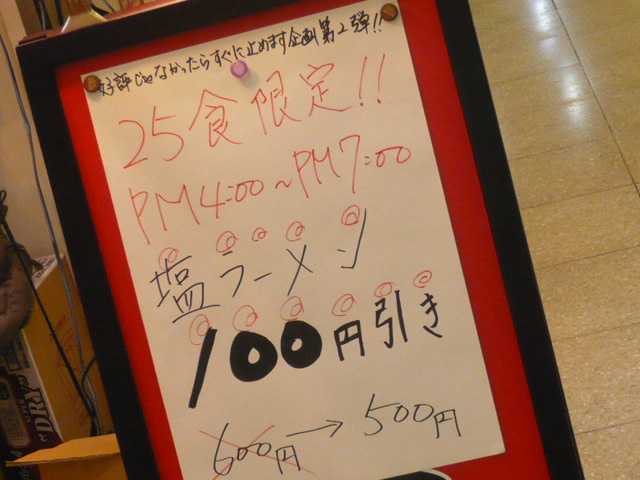 好評じゃなかったらすぐに止めます企画第2弾!!
25食限定!!
PM4:00~PM7:00
塩ラーメン
100円引き
600円→500円